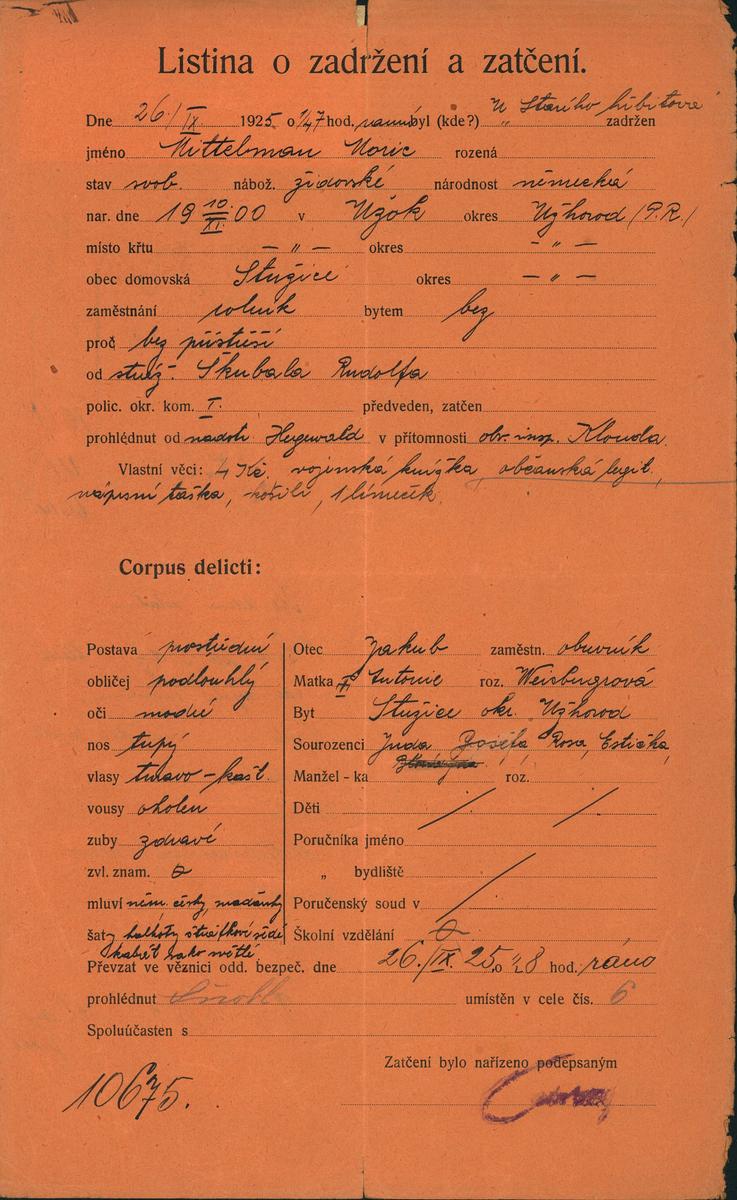 Listina o zadržení a zatčení.
Dne 26./IX 1925 o 1/47 hod. ranní byl (kde?) u Starého hřbitova zadržen
jméno Mittelman Moric rozená
stav svob. nábož. židovské národnost německá
nar. dne 19 10/XI. 00 v Užok okres Užhorod (P.R.)
místo křtu — „ — okres — „ —
obec domovská Stužice okres — „ —
zaměstnání rolník bytem bez
proč bez přístřeší
od stráž. Skubala Rudolfa
polic. okr. kom. I. předveden, zatčen
prohlédnut od nadstr. Hegewald v přítomnosti obv. insp. Klouda.
Vlastní věci: 4 Kč, vojenská knížka, občanská legit.,
nápisní taška, košili, 1 límeček.
Corpus delicti:
Postava prostřední
obličej podlouhlý
oči modré
nos tupý
vlasy tmavo-kašt.
vousy oholen
zuby zdravé
zvl. znam. 0
mluví něm. česky, maďarsky
šaty kalhoty štrajfkové šedé
kabát sako světlé
Otec Jakub zaměstn. obuvník
Matka Antonie roz. Weisbugrová
Byt Stužice okr. Užhorod
Sourozenci Juda, Josefa, Rosa, Estička,
Manžel - ka roz.
Děti / /
Poručníka jméno
„ bydliště
Poručenský soud v /
Školní vzdělání 0
Převzat ve věznici odd. bezpeč. dne 26./IX. 25 o 1/28 hod. ráno
prohlédnut umístěn v cele čís. 6
Spoluúčasten s
Zatčení bylo nařízeno podepsaným
10675.